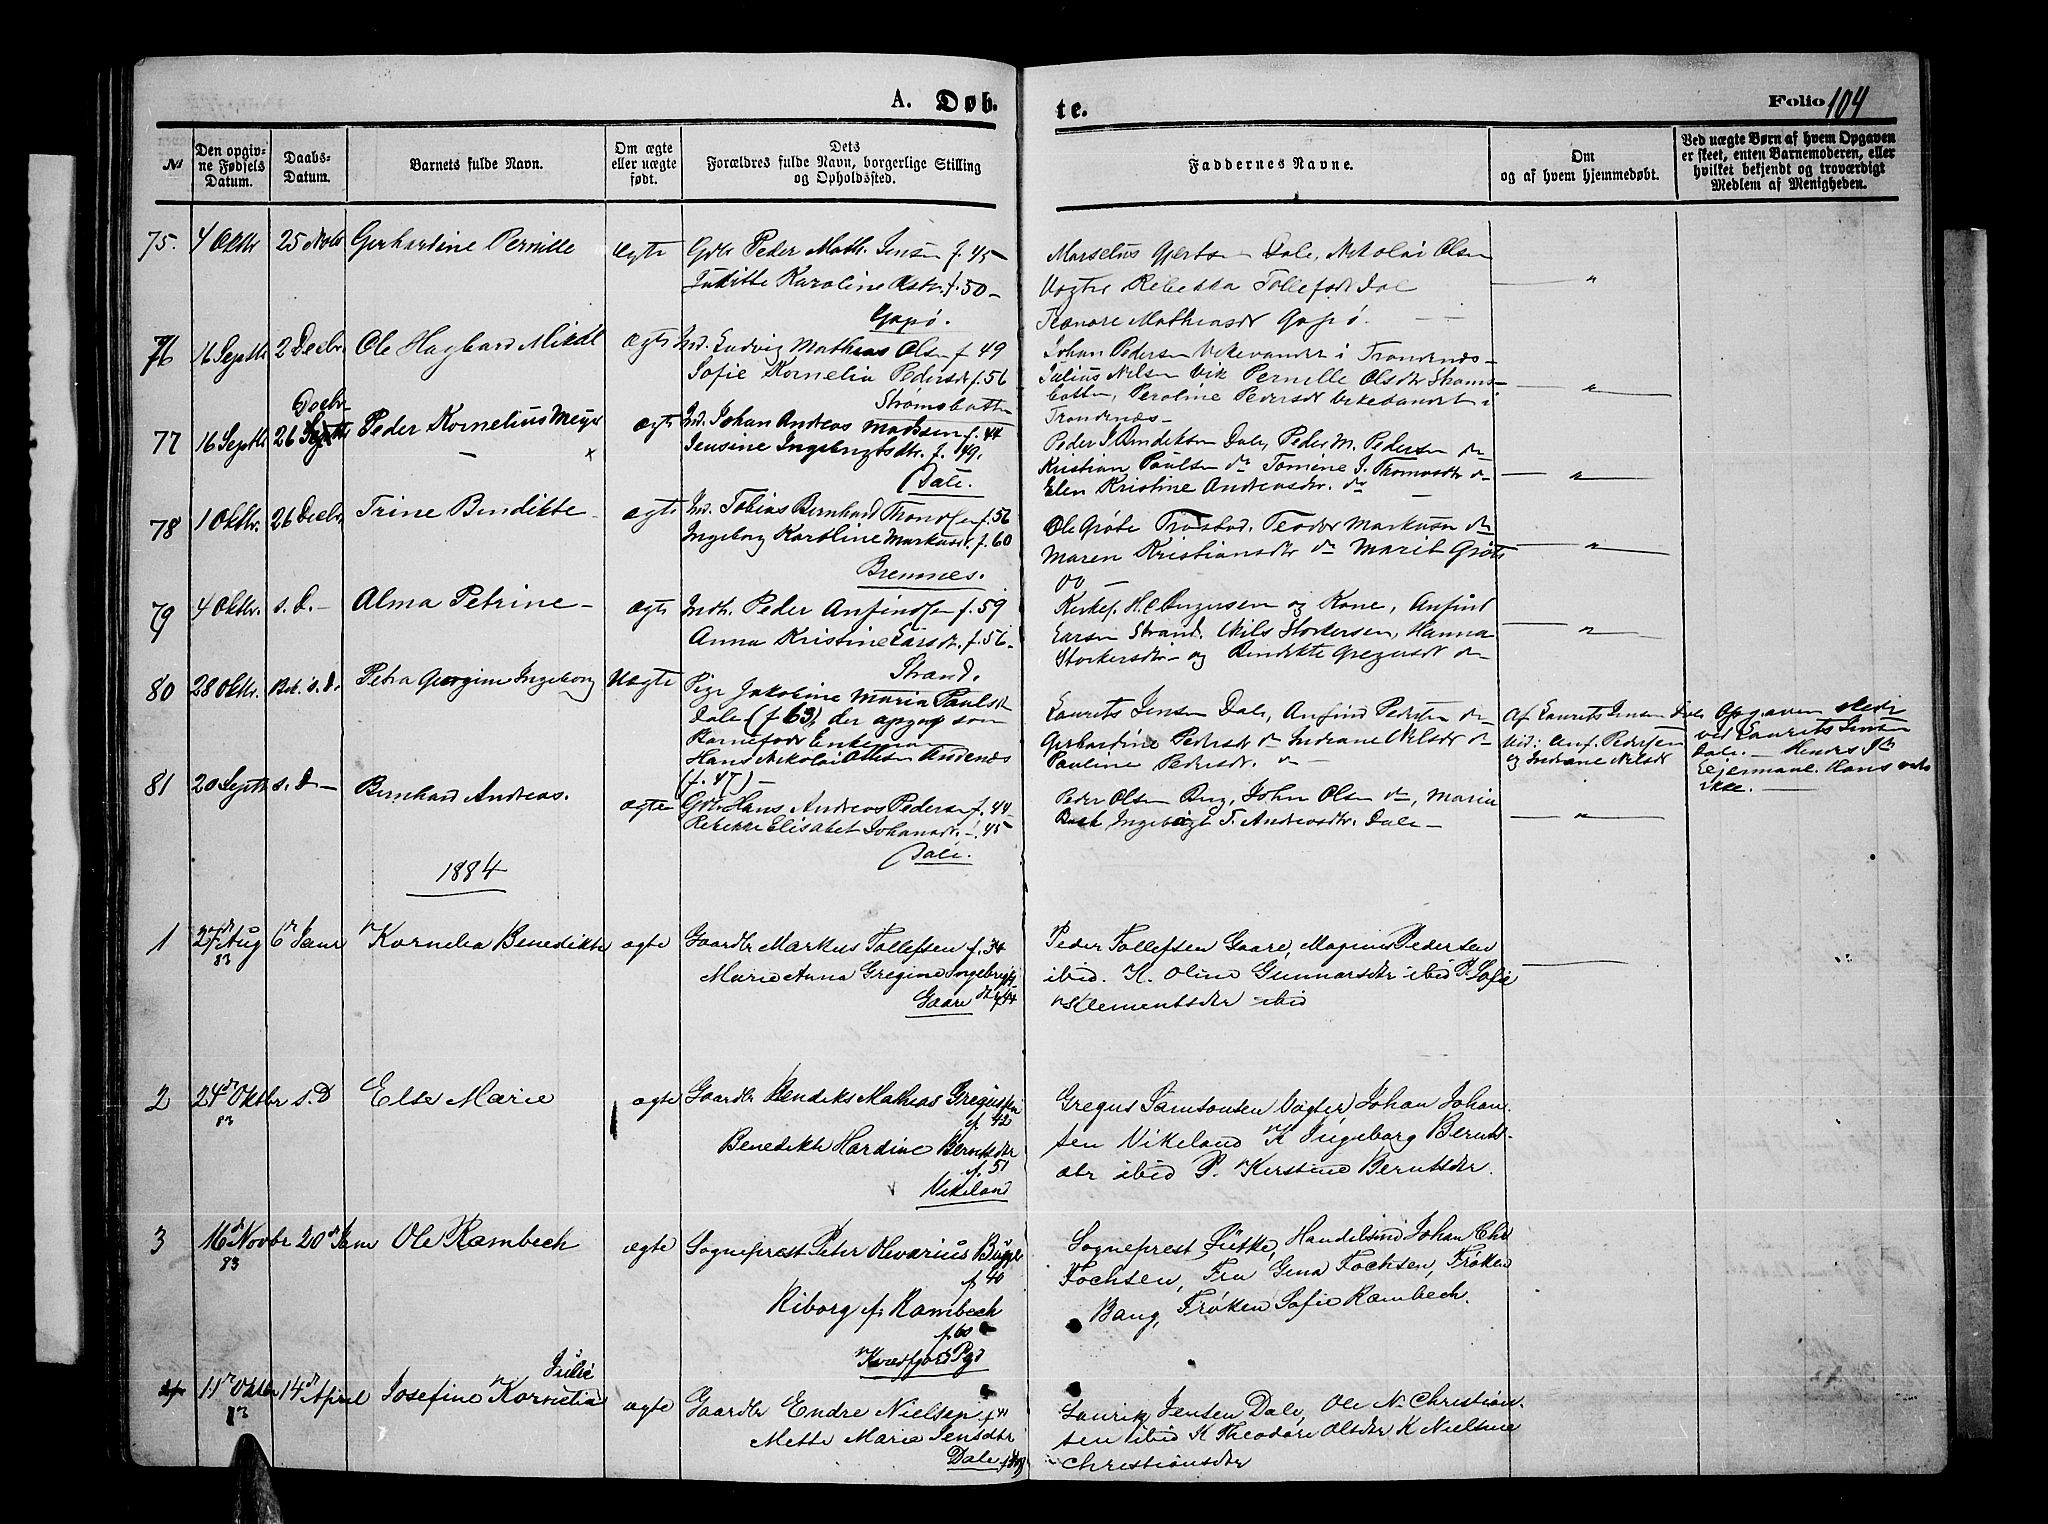 A. Døb.
te.
Folio 104
№
Den opgiv-
ne Fødsels
Datum.
Daabs-
Datum.
Barnets fulde Navn.
Om ægte
eller uægte
født.
Dets
Forældres fulde Navn, borgerlige Stilling
og Opholdssted.
Faddernes Navne.
Om
og af hvem hjemmedøbt.
Ved uægte Børn af hvem Opgaven
er skeet, enten Barnemoderen, eller
hvilket bekjendt og troværdigt
Medlem af Menigheden.
75. 4 Oktbr 25 Novbr Gerhardine Pernille ægte Gdbr Peder Math. Jensen f. 45
Karoline f. 50
Gapø.
Marselius Dale, Nikolai Olsen
Vogter Rebekka Dale
Mathiasdr Gapø.
76 16 Septbr 2 Decbr. Ole Hagbard Mikal ægte Ind. Ludvig Mathias Olsen f 49
Sofie Kornelia Pedersdr f. 56
Strømsbotten
Johan Pedersen Vikevandet i Trondenæs
Julius Nilsen Vik Pernille Olsdtr Strøms-
botten, Peroline Pedersdr Vikevandet i
Trondenæs
77 16 Septbr 26 Decbr Peder Kornelius Meyer ægte Ind. Johan Andreas Madsen f. 44
Jensine Ingebrigtsdtr. f. 49.
Dale.
Peder J. Bendiksen Dale, Peder M. Pedersen do
Kristian Paulsen do Tomine J. Thomasdtr do
Elen Kristine Andreasdtr. do
78 1 Oktbr. 26 Decbr Trine Bendikte ægte Ind. Tobias Bernhard Thondsen f. 56
Ingeborg Karoline Markusdr. f. 60
Bremnes.
Ole Grøte Teodor Markusen do
Maren Kristiansdtr do Marit Grøte
do
79 4 Oktbr. s. d. Alma Petrine ægte Indr. Peder Anfindsen f. 59
Anna Kristine Larsdr. f. 56
Strand.
Kirkes. H. C. og Kone, Anfind
Larsen Strand, Nils Storkersen, Hanna
Storkersdtr og Bendikte Gregusdr do
80 28 Oktbr. Bek. s. d. Petra Georgine Ingeborg Uægte Pige Jakobine Maria Paulsdr
Dale (f. 63), der opgav som
Barnefader Enkem.
Hans Nikolai Andenæs
(f. 47)
Laurits Jensen Dale, Anfind Pedersen do
Gerhardine Pedersdr do Indiane Nilsdr do
Pauline Pedersdr. do
Af Laurits Jensen Dale
Vid: Anf. Pedersen
og Indiane Nilsdr
Opgaven skede
ved Laurits Jensen
Dale.
Hans veds
ikke.
81 20 Septbr s. d. Bernhard Andreas. ægte Gdbr Hans Andreas Pedersen f. 44
Rebekke Elisabet Johansdr. f. 45
Dale.
Peder Olsen Bug, John Olsen do, Maria
Bech Ingeborg T. Andreasdtr. Dale
1884
1 27de Aug 83 6te Janr Kornelia Benedikte ægte Gaardbr Markus Tollefsen f. 34
Marie Anna Gregine Ingebrigts
dtr f. 44
Gaare
Peder Tollefsen Gaare, Magnus Pedersen
ibid. K. Oline Gunnarsdtr ibid P. Sofie
Klementsdtr ibid
2 24de Oktbr 83 s. D Else Marie ægte Gaardbr Bendiks Mathias Gregussen
f. 42
Benedikte Hardine Berntsdtr
f. 51
Vikeland
Gregus Samsonsen Vogter Johan Johan-
sen Vikeland K Ingeborg Bernts-
dtr ibid P. Kerstine Berntsdtr.
3 16de Novbr 83 20de Jan Ole Rambech ægte Sogneprest Peter Olivarius Bugge
f. 40
Riborg f. Rambech
f. 60
Kvædfjord Pgd
Sogneprest Lütke, Handelsmd Johan Chr
Fochsen, Fru Gina Fochsen, Frøken
Bang, Frøken Sofie Rambech.
4 11te Oktbr 83 14de April Josefine Kornelia Julie ægte Gaardbr Endre Nielsen f. 41
Mette Marie Jensdtr
Dale
Laurik Jensen Dale, Ole N. Christian-
sen ibid K Theodore Olsdtr K Nielsine
Christiansdtr